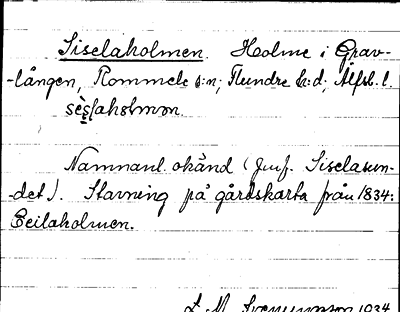 Siselaholmen. Holme i Grav-
-lången, Rommele s:n; Flundre h:d; Älfsb. l.
sèslahòlmən.
Namnanl. okänd (Jmf. Siselasun-
-det). Stavning på gårdskarta från 1834:
Ceilaholmen.
1934